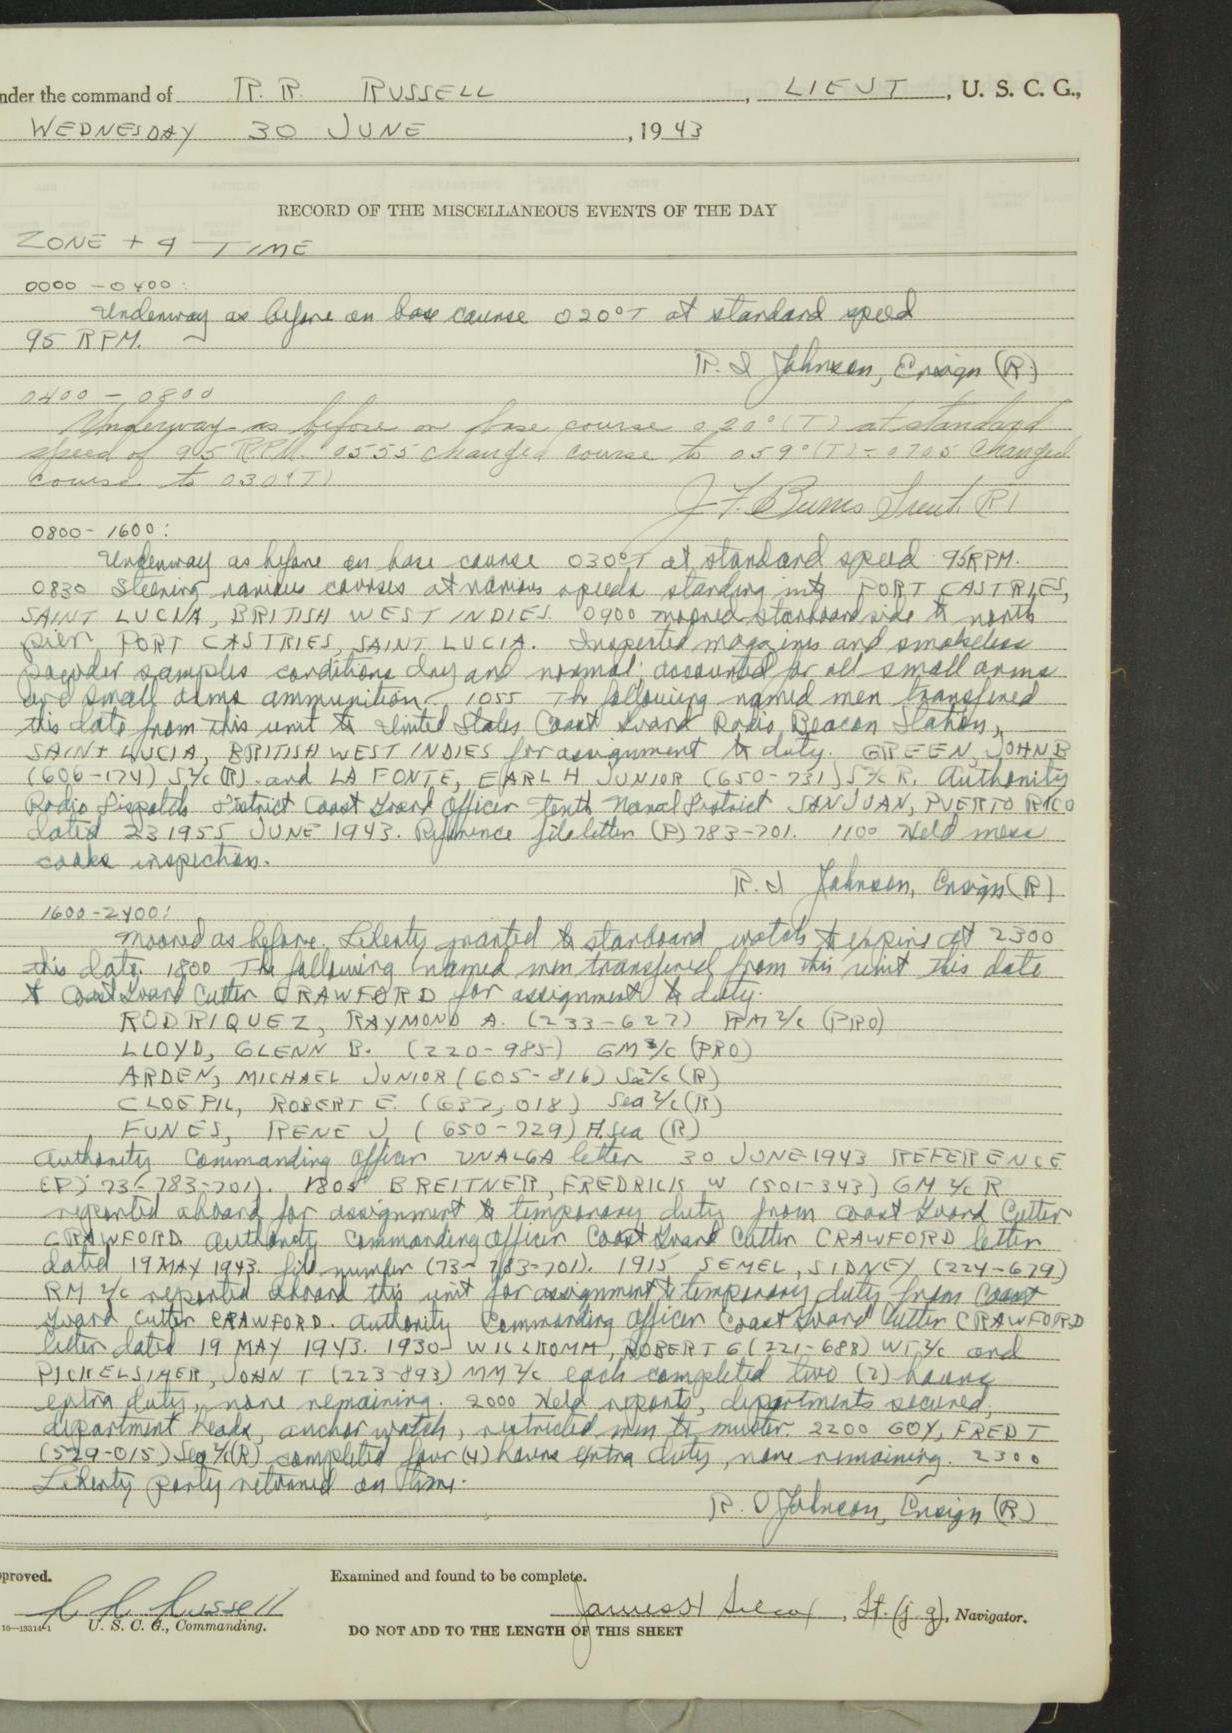 nder the command of R. R. RUSSELL, LIEUT, U. S. C. G.,
WEDNESDAY 30 JUNE, 1943
RECORD OF THE MISCELLANEOUS EVENTS OF THE DAY
ZONE + 4 TIME
0000 - 0400:
Underway as before on base course 020°T at standard speed
95 RPM.
Johnson, Ensign (R)
0400 - 0800
Underway as before on base course 020°(T) at standard
speed of 95 R.P.M. 0555 changed course to 059°(T) - 0705 changed
course to 030°(T)
J F Burns Lieut. (R)
0800 - 1600:
Underway as before on base course 030°T at standard speed 95 RPM.
0830 Steering various courses at various speeds standing into PORT CASTRIES,
SAINT LUCIA, BRITISH WEST INDIES. 0900 moored starboard side to north
pier PORT CASTRIES, SAINT LUCIA. Inspected magazines and smokeless
powder samples conditions dry and normal; accounted for all small arms
and small arms ammunition. 1055 The following named men transfered
this date from this unit to United States Coast Guard Radio Beacon Station,
SAINT LUCIA, BRITISH WEST INDIES for assignment to duty. GREEN, JOHN B
(606-174) S2/c (R) and LA FONTE, EARL H JUNIOR (650-731) S2/c R. Authority
Radio Dispatch District Coast Guard Officer Tenth Naval District SAN JUAN, PUERTO RICO
dated 231955 JUNE 1943. Reference file letter (P) 783-701. 1100 Held mess
cooks inspection.
Johnson, Ensign (R)
1600-2400:
Moored as before. Liberty granted to starboard watch to expire at 2300
this date. 1800 The following named men transfered from this unit this date
to Coast Guard Cutter CRAWFORD for assignment to duty.
RODRIQUEZ, RAYMOND A. (233-627) RM 2/c (PRO)
LLOYD, GLENN B. (220-985) GM 3/c (PRO)
ARDEN, MICHAEL JUNIOR (605-816) Sea 2/c (R)
CLOEPIL, ROBERT E. (637,018) Sea 2/c (R)
FUNES, RENE J (650-729) A.Sea (R)
Authority Commanding Officer UNALGA letter 30 JUNE 1943 REFERENCE
(P) 73-783-701). 1805 BREITNER, FREDRICK W (501-343) GM 2/c R
reported aboard for assignment to temporary duty from Coast Guard Cutter
CRAWFORD. Authority Commanding Officer Coast Guard Cutter CRAWFORD letter
dated 19 MAY 1943. file number (73-783-701). 1915 SEMEL, SIDNEY (224-679)
RM 2/c reported aboard this unit for assignment to temporary duty from Coast
Guard Cutter CRAWFORD. Authority Commanding Officer Coast Guard Cutter CRAWFORD
letter dated 19 MAY 1943. 1930 WILLKOMM, ROBERT G (221-688) WT 2/c and
PICKELSIMER, JOHN T (223-893) MM 2/c each completed two (2) hours
extra duty, none remaining. 2000 Held reports, departments secured,
department heads, anchor watch, restricted men to muster. 2200 GOY, FRED T
(529-015) Sea 2/c(R) completed four (4) hours extra duty, none remaining. 2300
Liberty party returned on time.
Johnson, Ensign (R)
pproved. Examined and found to be complete.
R R Russell James H Silcox, Lt. (j.g), Navigator.
16-13314-1 U. S. C. G., Commanding. DO NOT ADD TO THE LENGTH OF THIS SHEET